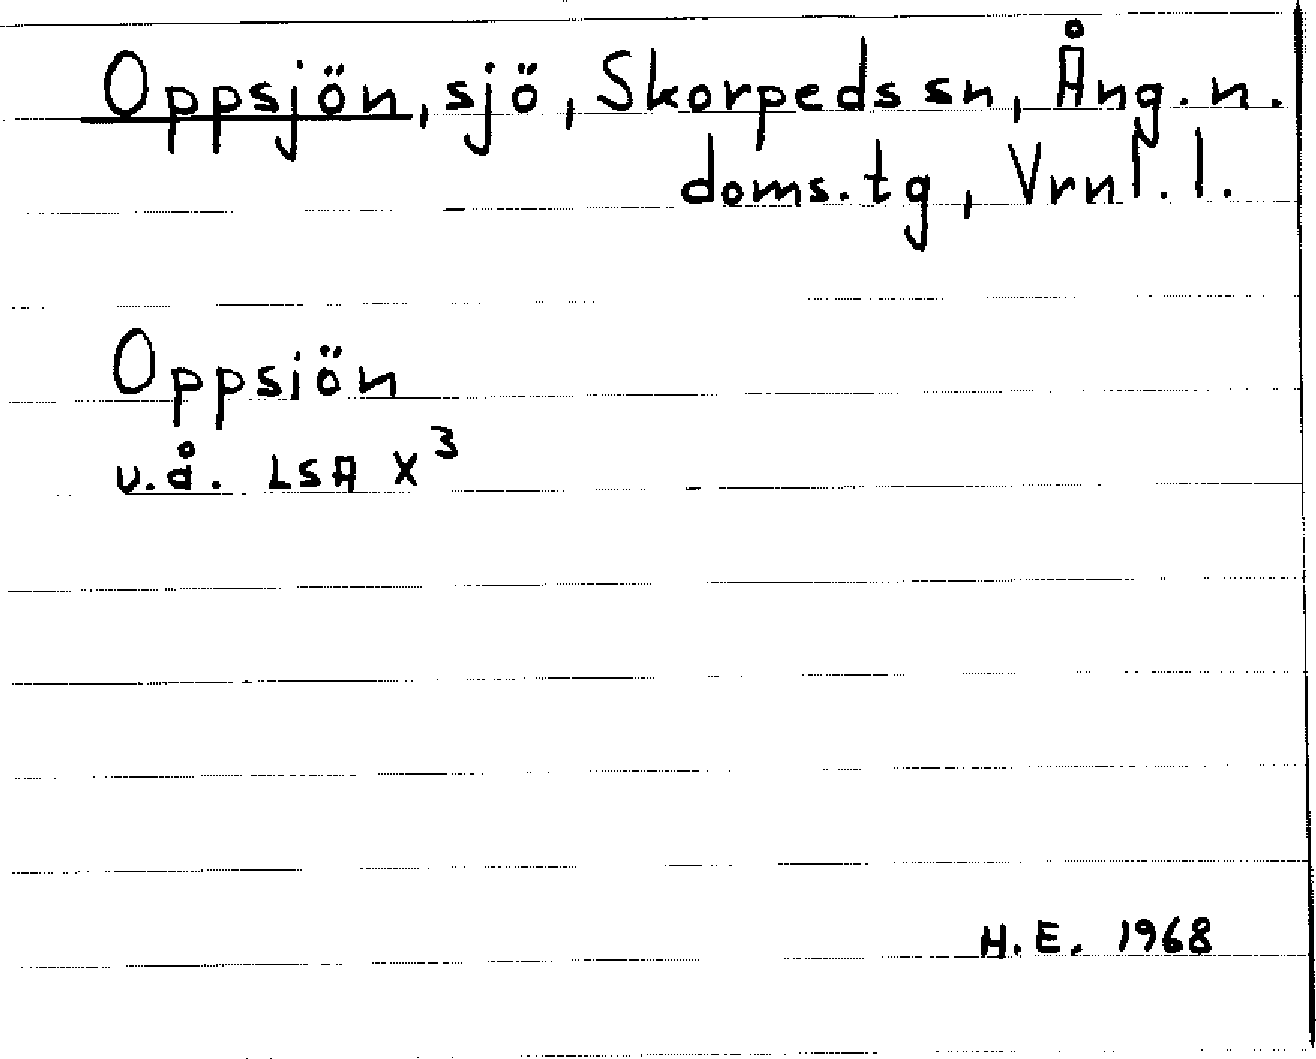 Oppsjön, sjö, Skorpeds sn, Ång. n.
doms. tg, Vrnl. l.
Oppsjön
u.å. LSA X³
H.E. 1968